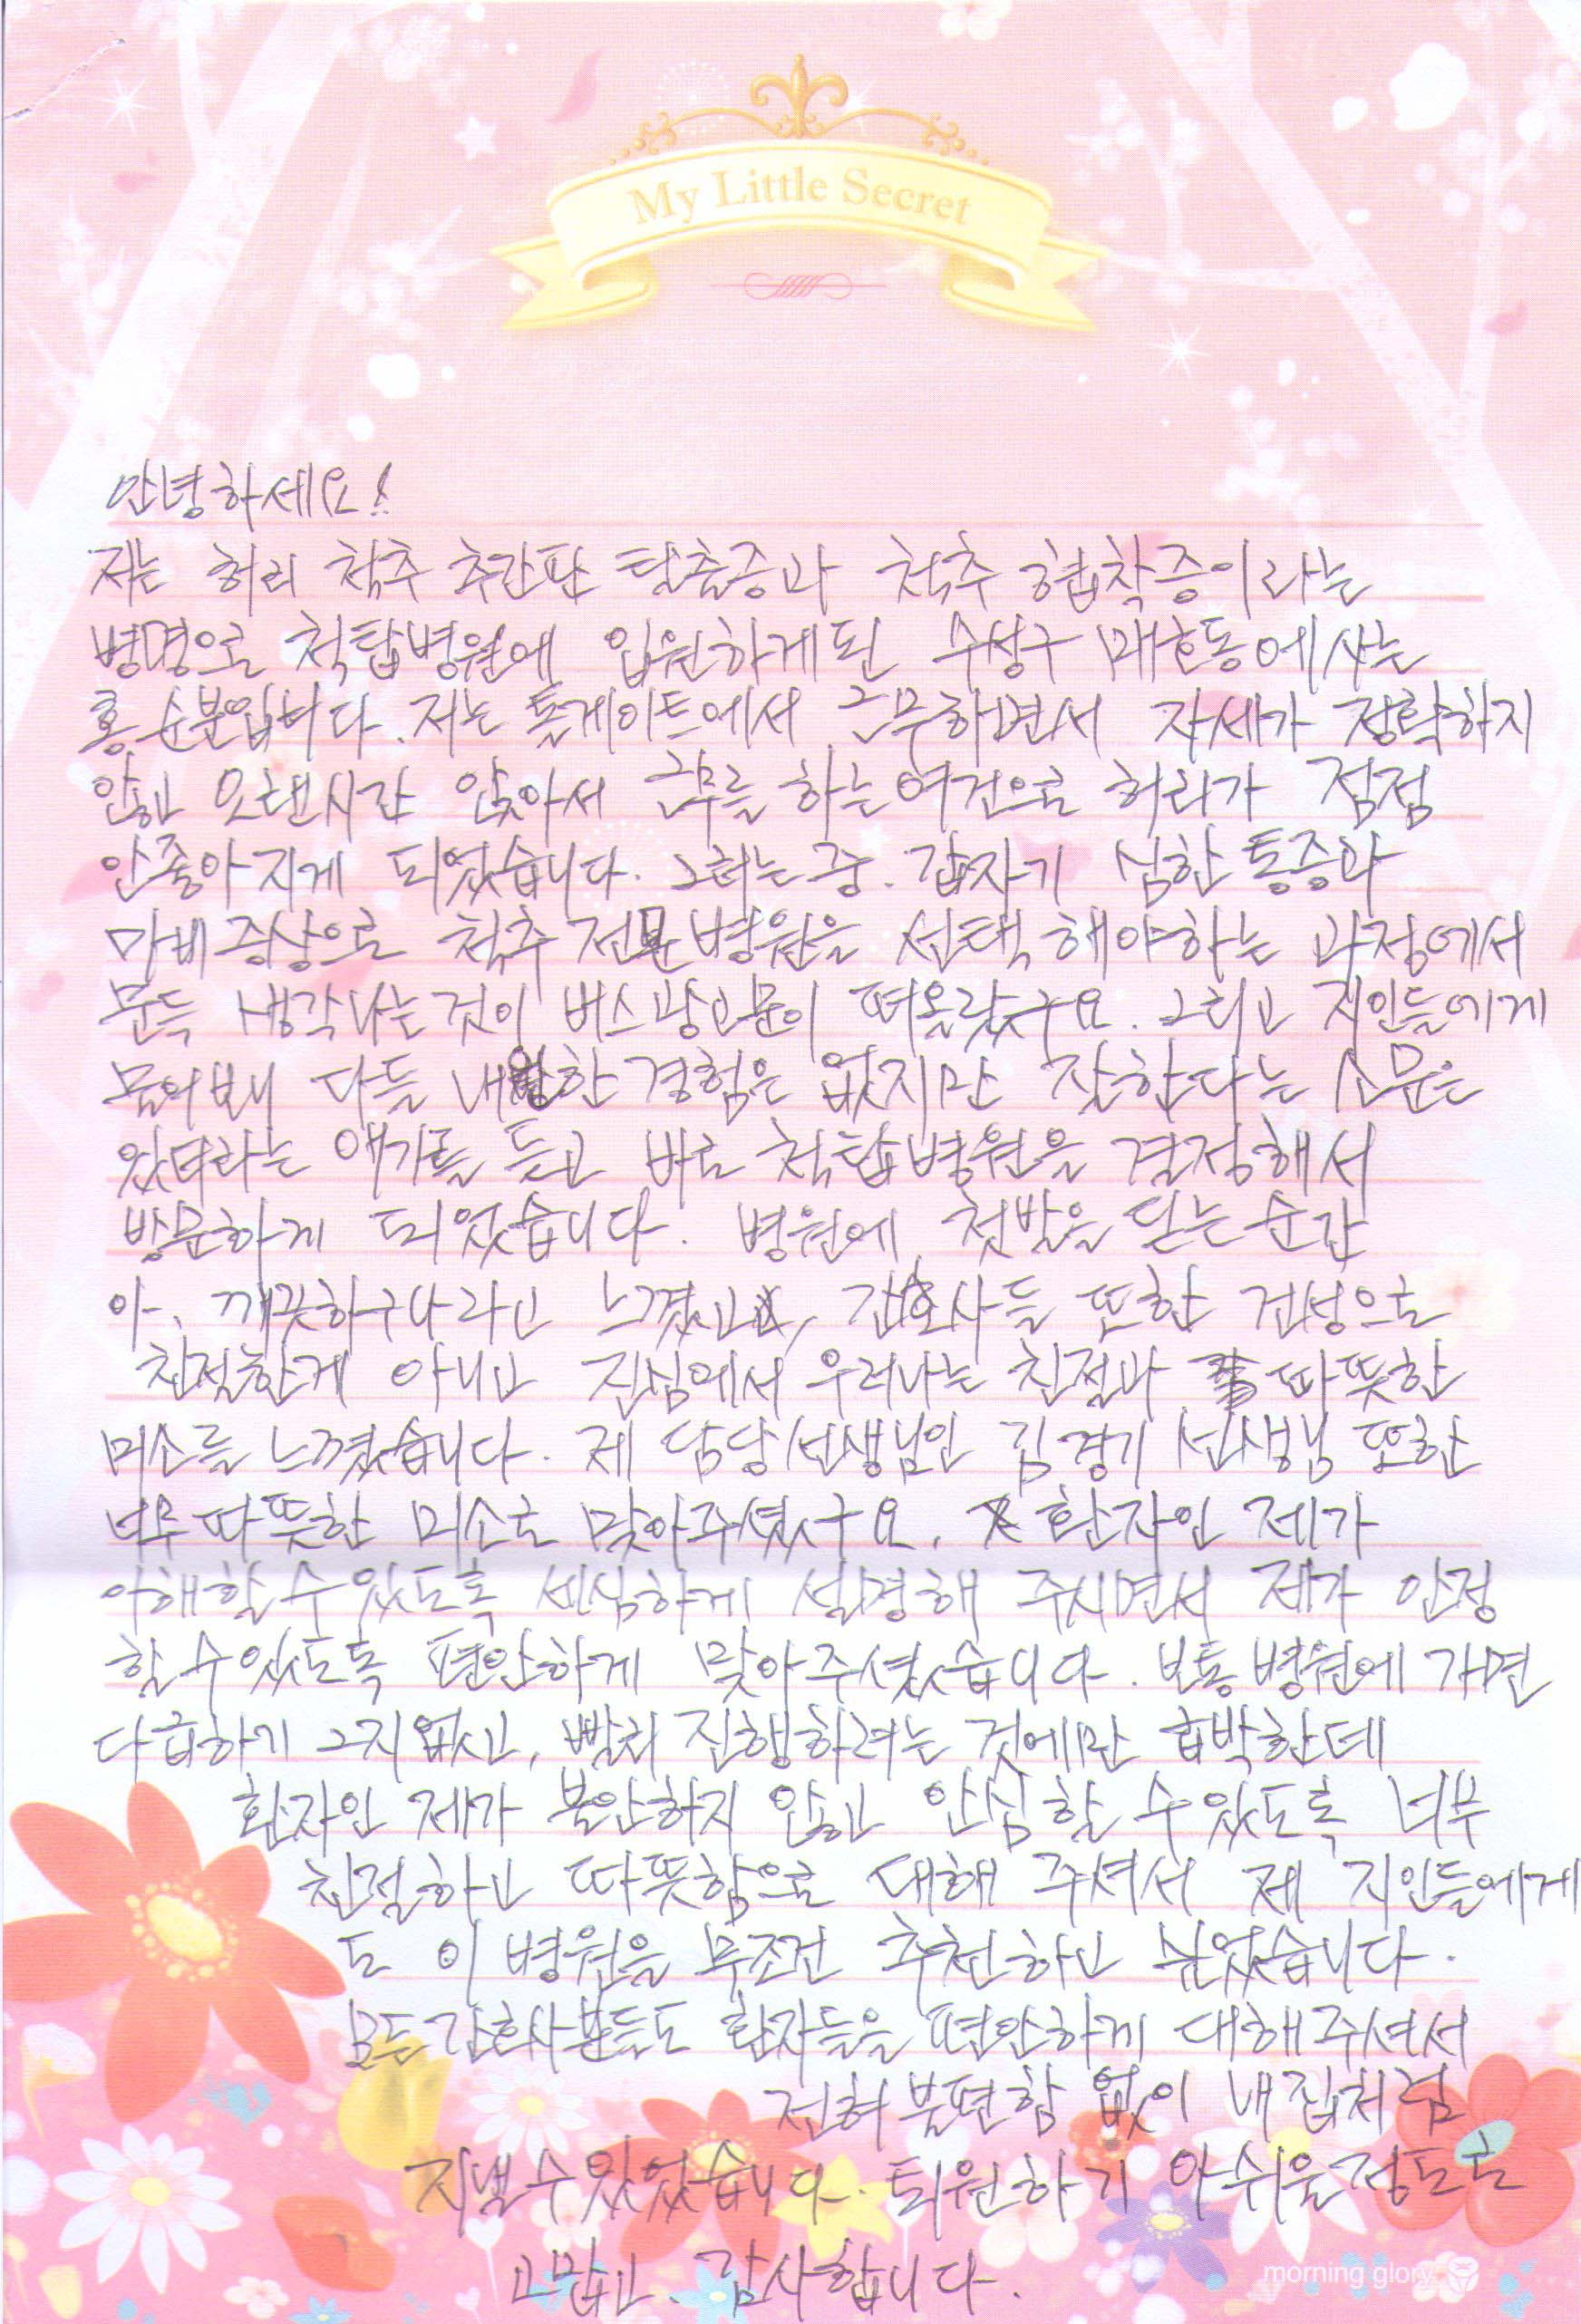 My Little Secret
안녕하세요!
저는 허리 척추 추간판 탈출증과 척추 협착증이라는
병명으로 척탑병원에 입원하게된 수성구 매호동에사는
홍순분입니다. 저는 톨게이트에서 근무하면서 자세가 정확하지
않고 오랜시간 앉아서 근무를 하는여건으로 허리가 점점
안좋아지게 되었습니다. 그러는중. 갑자기 심한통증과
마비증상으로 척추 전문병원을 선택해야하는 과정에서
문득 생각나는것이 버스광고문이 떠올랐구요. 그리고 지인들에게
물어보니 다들 내원한 경험은 없지만 잘한다는 소문은
있더라는 얘기를 듣고 바로 척탑병원을 결정해서
방문하게 되었습니다. 병원에 첫발을 딛는순간
아, 깨끗하구나라고 느꼈고, 간호사들 또한 건성으로
친절한게 아니고 진심에서 우러나는 친절과 따뜻한
미소를 느꼈습니다. 제 담당선생님인 김경기 선생님 또한
너무따뜻한 미소로 맞아주셨구요. 환자인 제가
이해할수있도록 세심하게 설명해 주시면서 제가 안정
할수있도록 편안하게 맞아주셨습니다. 보통병원에가면
다급하기 그지없고, 빨리 진행하려는 것에만 급박한데
환자인 제가 불안하지 않고 안심할 수있도록 너무
친절하고 따뜻함으로 대해 주셔서 제 지인들에게
도 이병원을 무조건 추천하고 싶었습니다.
모든간호사분들도 환자들을 편안하게 대해주셔서
전혀불편함 없이 내집처럼
지낼수있었습니다. 퇴원하기 아쉬울정도로
고맙고. 감사합니다.
morning glory